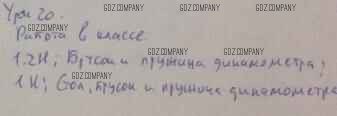 Урок 20.
Работа в классе
1. 2Н; Брусок и пружина динамометра;
1 Н; Стол, брусок и пружина динамометра
GDZ.COMPANY
GDZ.COMPANY
GDZ.COMPANY
GDZ.COMPANY
GDZ.COMPANY
GDZ.COMPANY
GDZ.COMPANY
GDZ.COMPANY